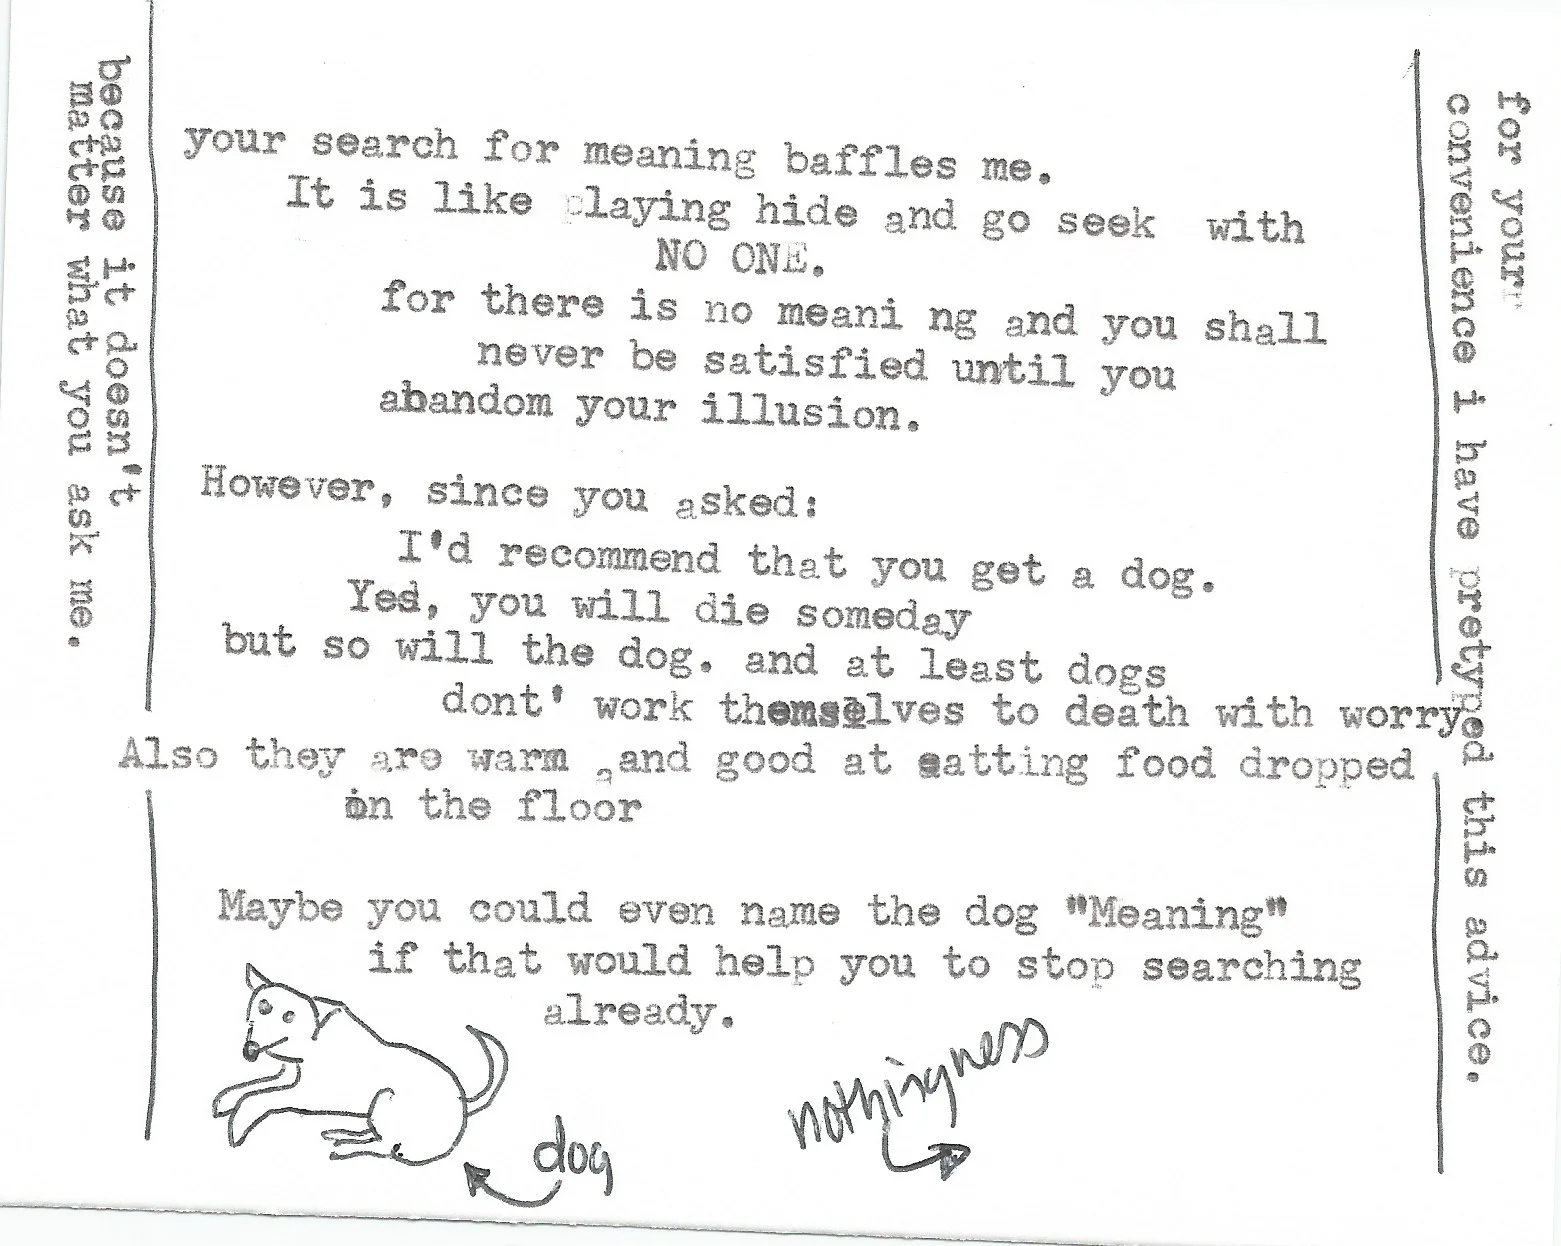 for your
convenience i have pretyped this advice.
because it doesn't
matter what you ask me.
your search for meaning baffles me.
It is like playing hide and go seek with
NO ONE.
for there is no meani ng and you shall
never be satisfied until you
abandom your illusion.
However, since you asked:
I'd recommend that you get a dog.
Yes, you will die someday
but so will the dog. and at least dogs
dont' work themselves to death with worry.
Also they are warm ,and good at eatting food dropped
on the floor
Maybe you could even name the dog "Meaning"
if that would help you to stop searching
already.
dog
nothingness